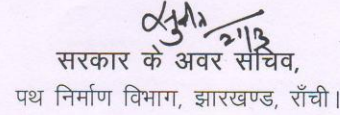 सरकार के अवर सचिव,
पथ निर्माण विभाग, झारखण्ड, राँची।